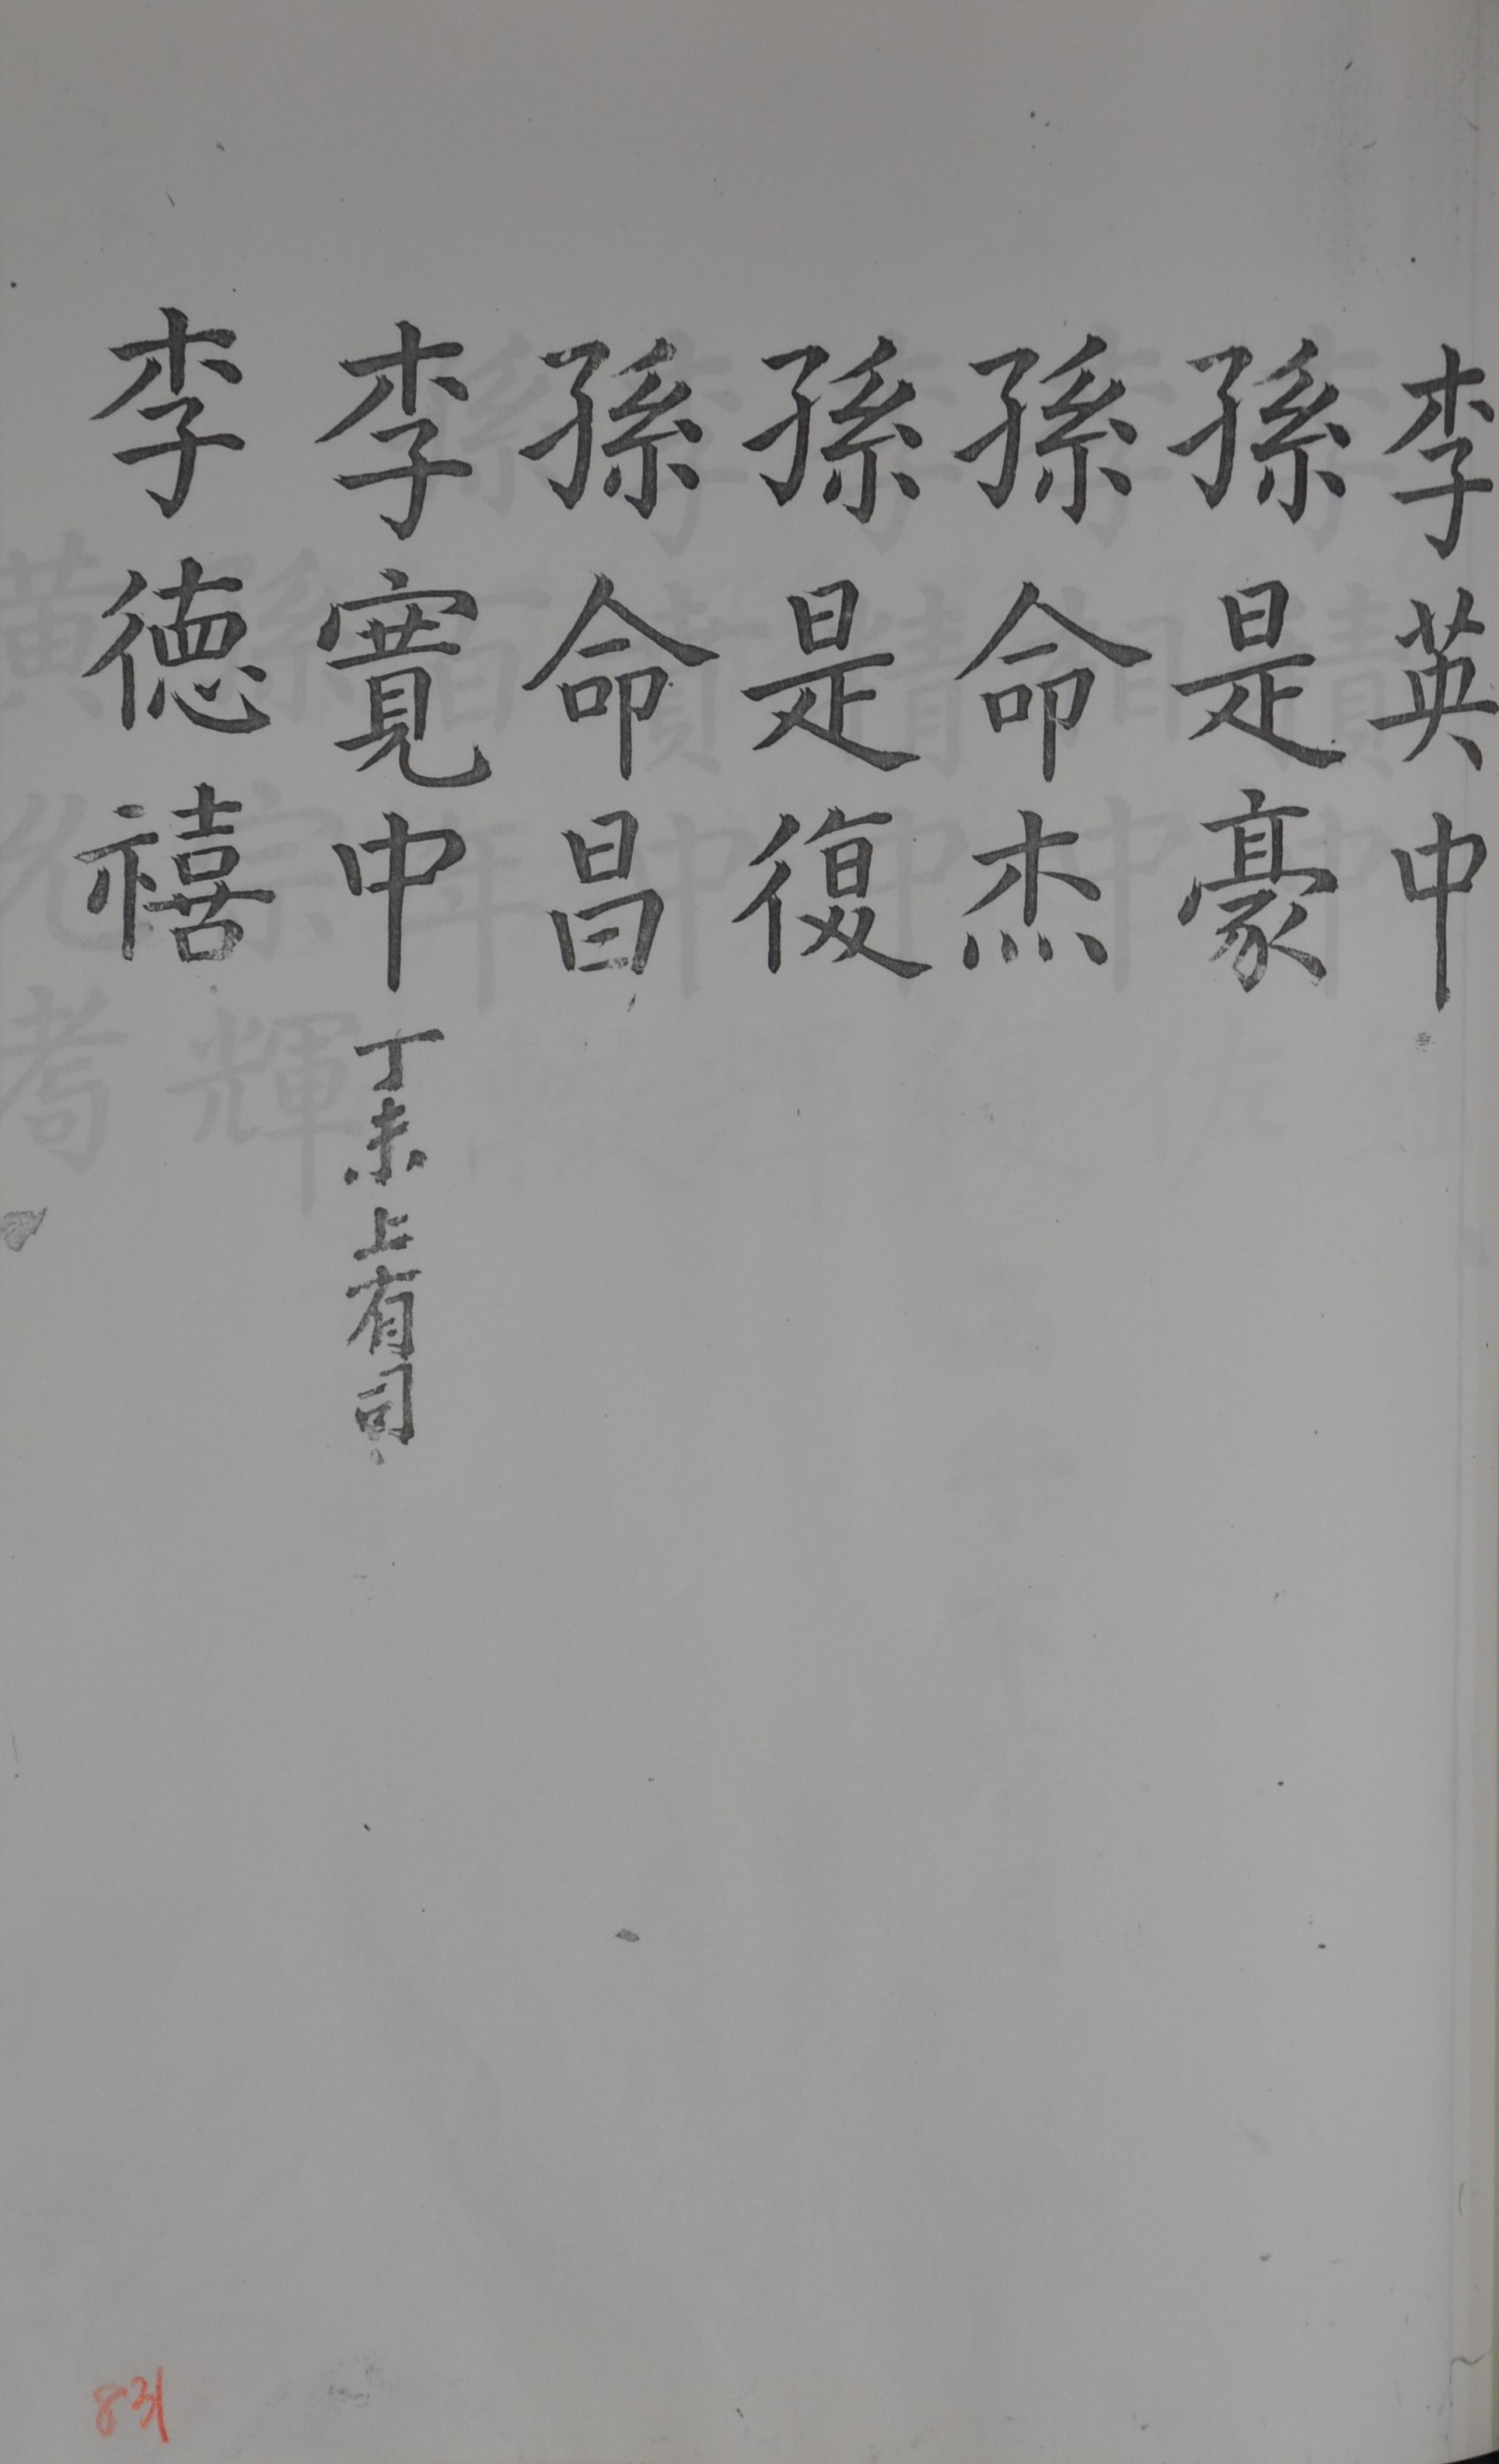 李英中
孫是豪
孫命杰
孫是復
孫命昌
李寬中 丁未上有司
李德禧
831